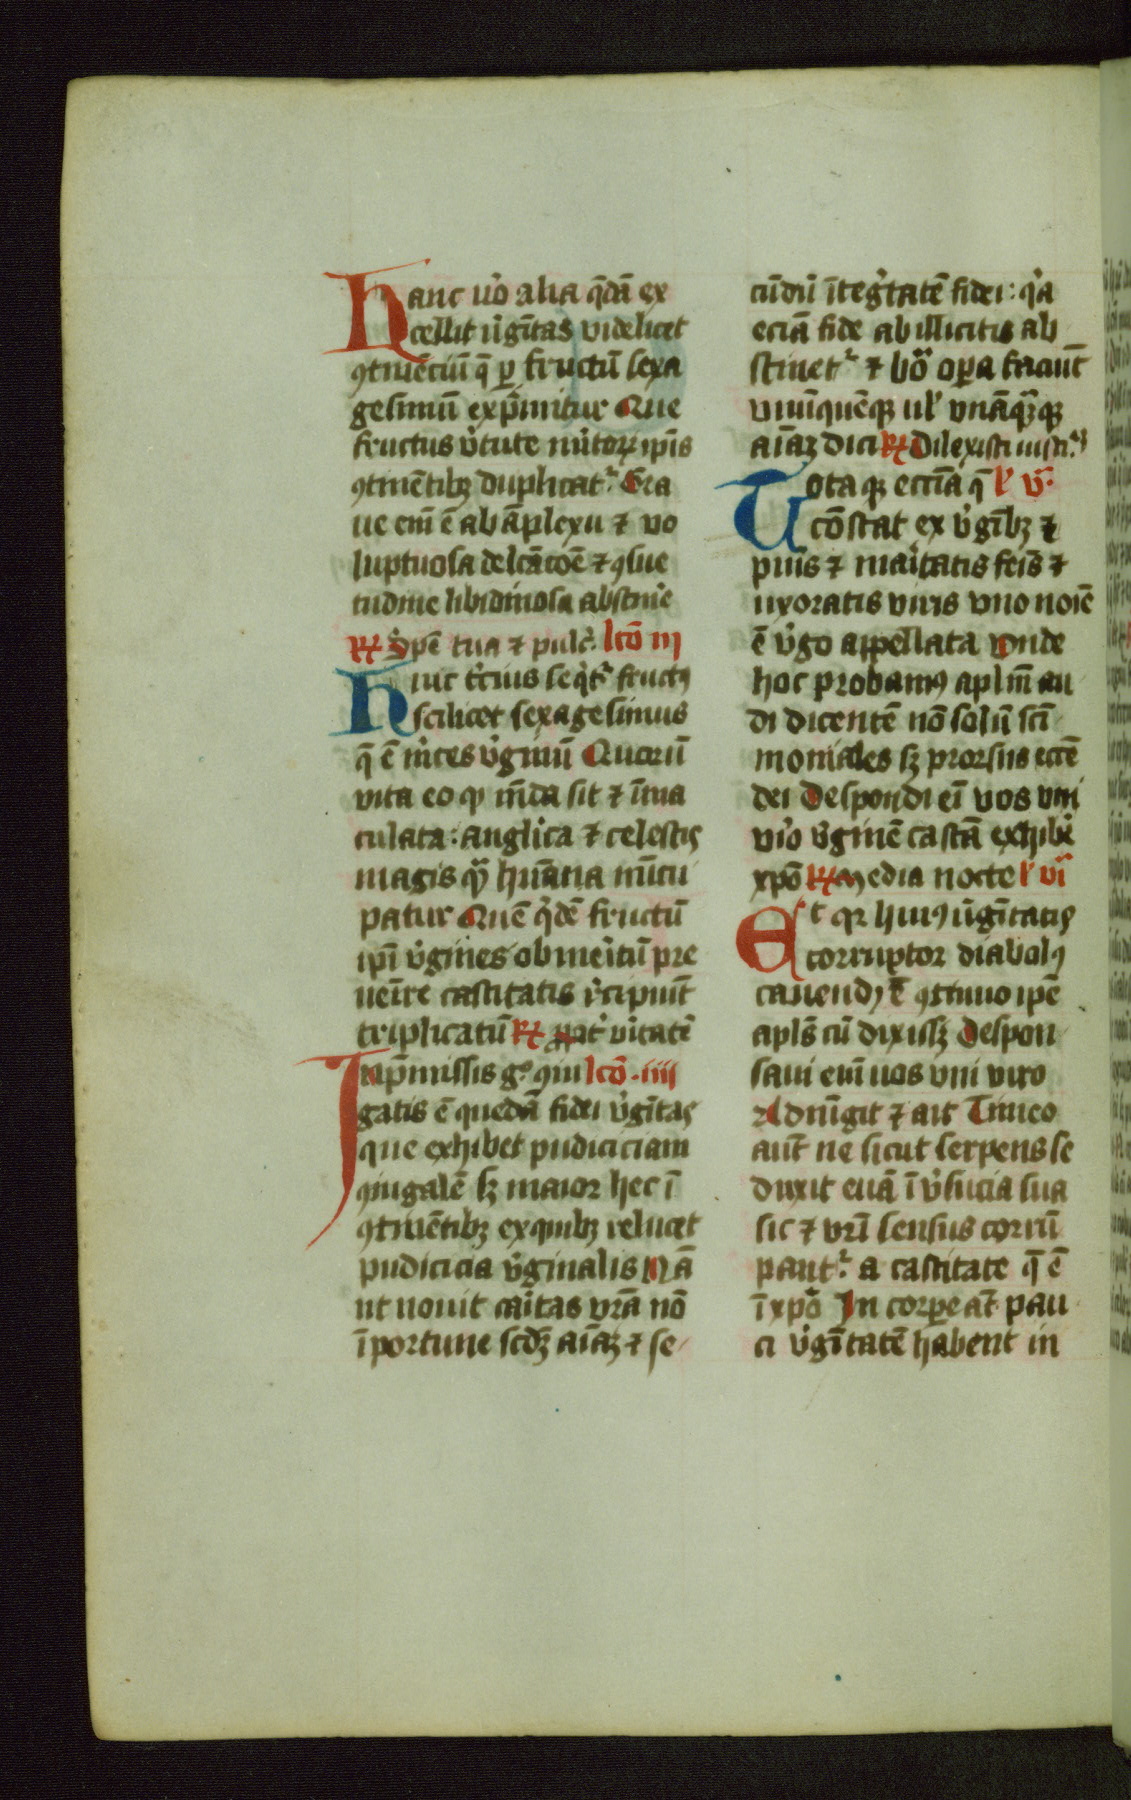 Hanc vo̾ alia q̄dā ex
cellit v̾gĩtas videlicet
ꝯtinēciū q̄ ꝑ fructū sexa
gesimū exp̄mitur Que
fructus v̾tute mĩtoꝝ ip̄is
ꝯtinētibꝫ duplicat᷑ Gra
ue em̄ ē ab āplexu ⁊ vo
luptuosa delc̄acōe ⁊ ꝯsue
tudine libidinosa abstine̾
℟ Spē tua ⁊ pulc̾. lcō iij
Huic t̾cius seqt᷑ fructꝰ
scilicet sexagesimus
q̄ ē m̾ces v̾ginū Quorū
vita eo ꝙ mūda sit ⁊ īma
culata: anglica ⁊ celestis
magis qͣꝫ humana nūcu
patur Quē q̾dē fructū
ip̄i v̾gines ob meritū pre
uenīre castitatis r̾cipiūt
triplicatū ℟ ꝓpt̾ v̾itatē
In p̄missis gͦ ꝯiu lcō .iiij
gatis ē quedā fidei v̾gĩtas
que exhibet pudiciciam
ꝯiugalē sꝫ maior hec ī
ꝯtinētibꝫ ex quibꝫ relucet
pudicicia v̾ginalis Nā
ut nouit caritas vr̄a nō
īportune scdꝫ aīaꝫ ⁊ se
cūdū ītegritatē fidei: q̾a
eciā fide ab illicitis ab
stinet᷑ ⁊ boͣ oꝑa faciūt
vnūquēqꝫ ul᷑ vnāqͣꝫqꝫ
aīaꝫ dici ℟ Dilexisti iusti.
Tota qꝫ eccīa q̄ l᷑ v.
cōstat ex v̾gībꝫ ⁊
pīnis ⁊ maritatis feīs ⁊
uxoratis viris vno noīe
ē v̾go appellata vnde
hoc probamꝰ aplm̄ au
di dicentē nō solū scī
moniales sꝫ prorsus eccē
dei Despondi eī vos vni
viro v̾ginē castā exhibe̾
xpō ℟ Media nocte l᷑ vi
Et qꝛ huiꝰ v̾gĩtatis
corruptor diabolꝰ
cauendꝰ ē ꝯtinuo ip̄e
apl̄s cū dixissꝫ Despon
saui eīn uos vni viro
Adiūgit ⁊ ait Timeo
aūt ne sicut serpens se
duxit euā ī v̾sucia sua
sic ⁊ vr̄i sensus corrū
pant᷑ a castitate q̄ ē
ī xpō In corꝑe at̄ pau
ci v̾gītatē habent in